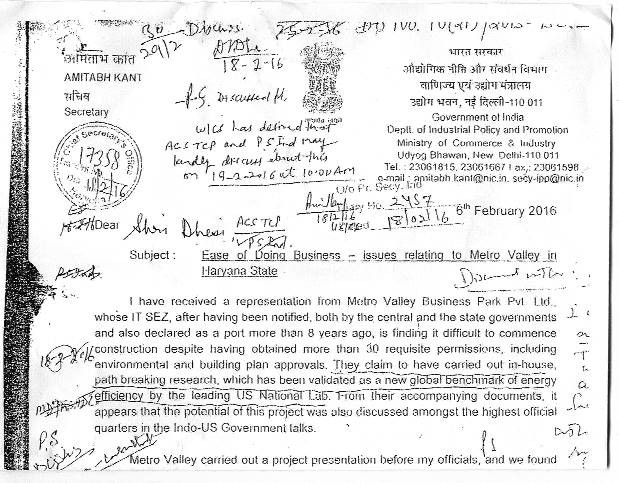 Discuss
29/2
25-2-16
18-2-16
अमिताभ कांत
AMITABH KANT
सचिव
Secretary
भारत सरकार
औद्योगिक नीति और संवर्धन विभाग
वाणिज्य एवं उद्योग मंत्रालय
उद्योग भवन, नई दिल्ली-110 011
Government of India
Deptt. of Industrial Policy and Promotion
Ministry of Commerce & Industry
Udyog Bhawan, New Delhi-110 011
Tel. : 23061815, 23061667 Fax.: 23061598
e-mail : amitabh.kant@nic.in, secy-ipp@nic.in
Discussed
W/CS has desired that
ACS TCP and PS Ind may
kindly discuss about this
on 19-2-2016 at 10:00 AM
Chief Secretary's Office
17358
18/2/16
U/o Pr. Secy. Ind
Diary No. 2457
18/2/16
18/02/16
6th February 2016
Dear Shri Dhesi
ACS TCP
Subject : Ease of Doing Business – issues relating to Metro Valley in
Haryana State
Discussed with
I have received a representation from Metro Valley Business Park Pvt. Ltd.,
whose IT SEZ, after having been notified, both by the central and the state governments
and also declared as a port more than 8 years ago, is finding it difficult to commence
construction despite having obtained more than 30 requisite permissions, including
environmental and building plan approvals. They claim to have carried out in-house,
path breaking research, which has been validated as a new global benchmark of energy
efficiency by the leading US National Lab. From their accompanying documents, it
appears that the potential of this project was also discussed amongst the highest official
quarters in the Indo-US Government talks.
PS
Metro Valley carried out a project presentation before my officials, and we found